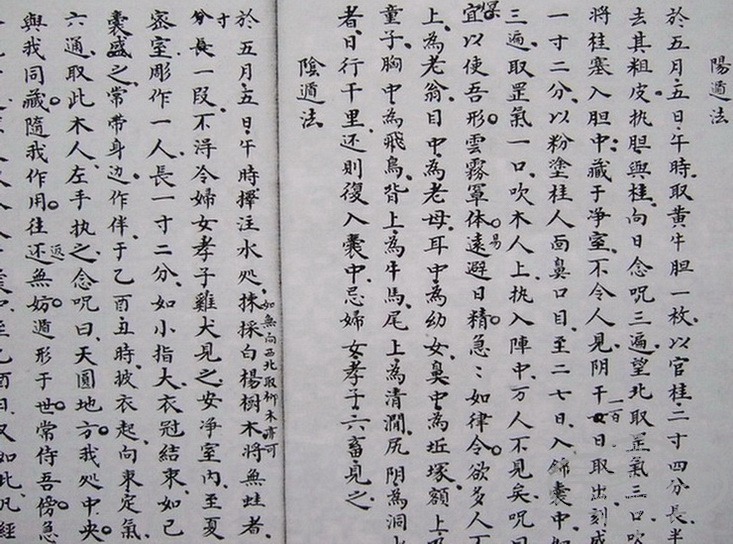 陽遁法
於五月五日午時取黃牛胆一枚以官桂二寸四分長半
去其粗皮执胆與桂向日念呪三遍望北取罡氣三口吹
將桂塞入胆中藏于净室不令人見阴干一百日取出刻成
一寸二分以粉塗桂人面鼻口目至二七日入錦囊中如
三遍取罡氣一口吹木人上执入陣中万人不見矣呪曰
宜以使吾形雲霧罩体遠避日精急:如律令欲多人
上為老翁目中為老母耳中為幼女鼻中為坵塚額上
童子胸中為飛鳥背上為牛馬尾上為清澗尻阴為洞
者日行千里还則復入囊中忌婦女孝子六畜見之
陰遁法
於五月五日午時擇注水处採白楊樹木將無蛀者
如無向西北取柳木亦可
寸分長一段不淂令婦女孝子雞犬見之安净室内至夏
密室彫作一人長一寸二分如小指大衣冠結束如已
囊盛之常带身边作伴于乙酉丑時披衣起向東定氣
六通取此木人左手执之念呪曰天圓地方我处中央
與我同藏隨我作用往还無妨遁形于世常侍吾傍急